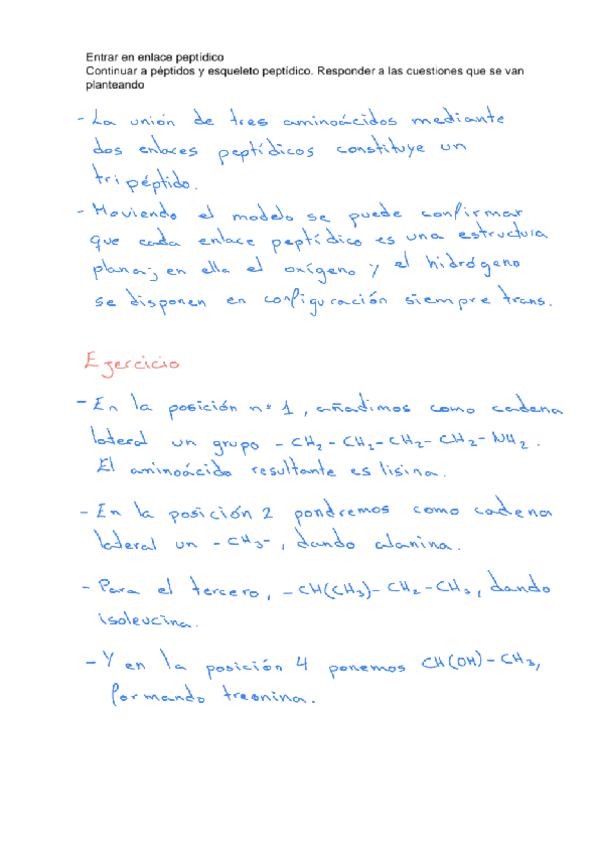 Entrar en enlace peptídico
Continuar a péptidos y esqueleto peptídico. Responder a las cuestiones que se van
planteando
- La unión de tres aminoácidos mediante
dos enlaces peptídicos constituye un
tripéptido.
- Moviendo el modelo se puede confirmar
que cada enlace peptídico es una estructura
plana; en ella el oxígeno y el hidrógeno
se disponen en configuración siempre trans.
Ejercicio
- En la posición nº 1, añadimos como cadena
lateral un grupo -CH₂-CH₂-CH₂-CH₂-NH₂.
El aminoácido resultante es lisina.
- En la posición 2 pondremos como cadena
lateral un -CH₃-, dando alanina.
- Para el tercero, -CH(CH₃)-CH₂-CH₃, dando
isoleucina.
- Y en la posición 4 ponemos CH(OH)-CH₃,
formando treonina.